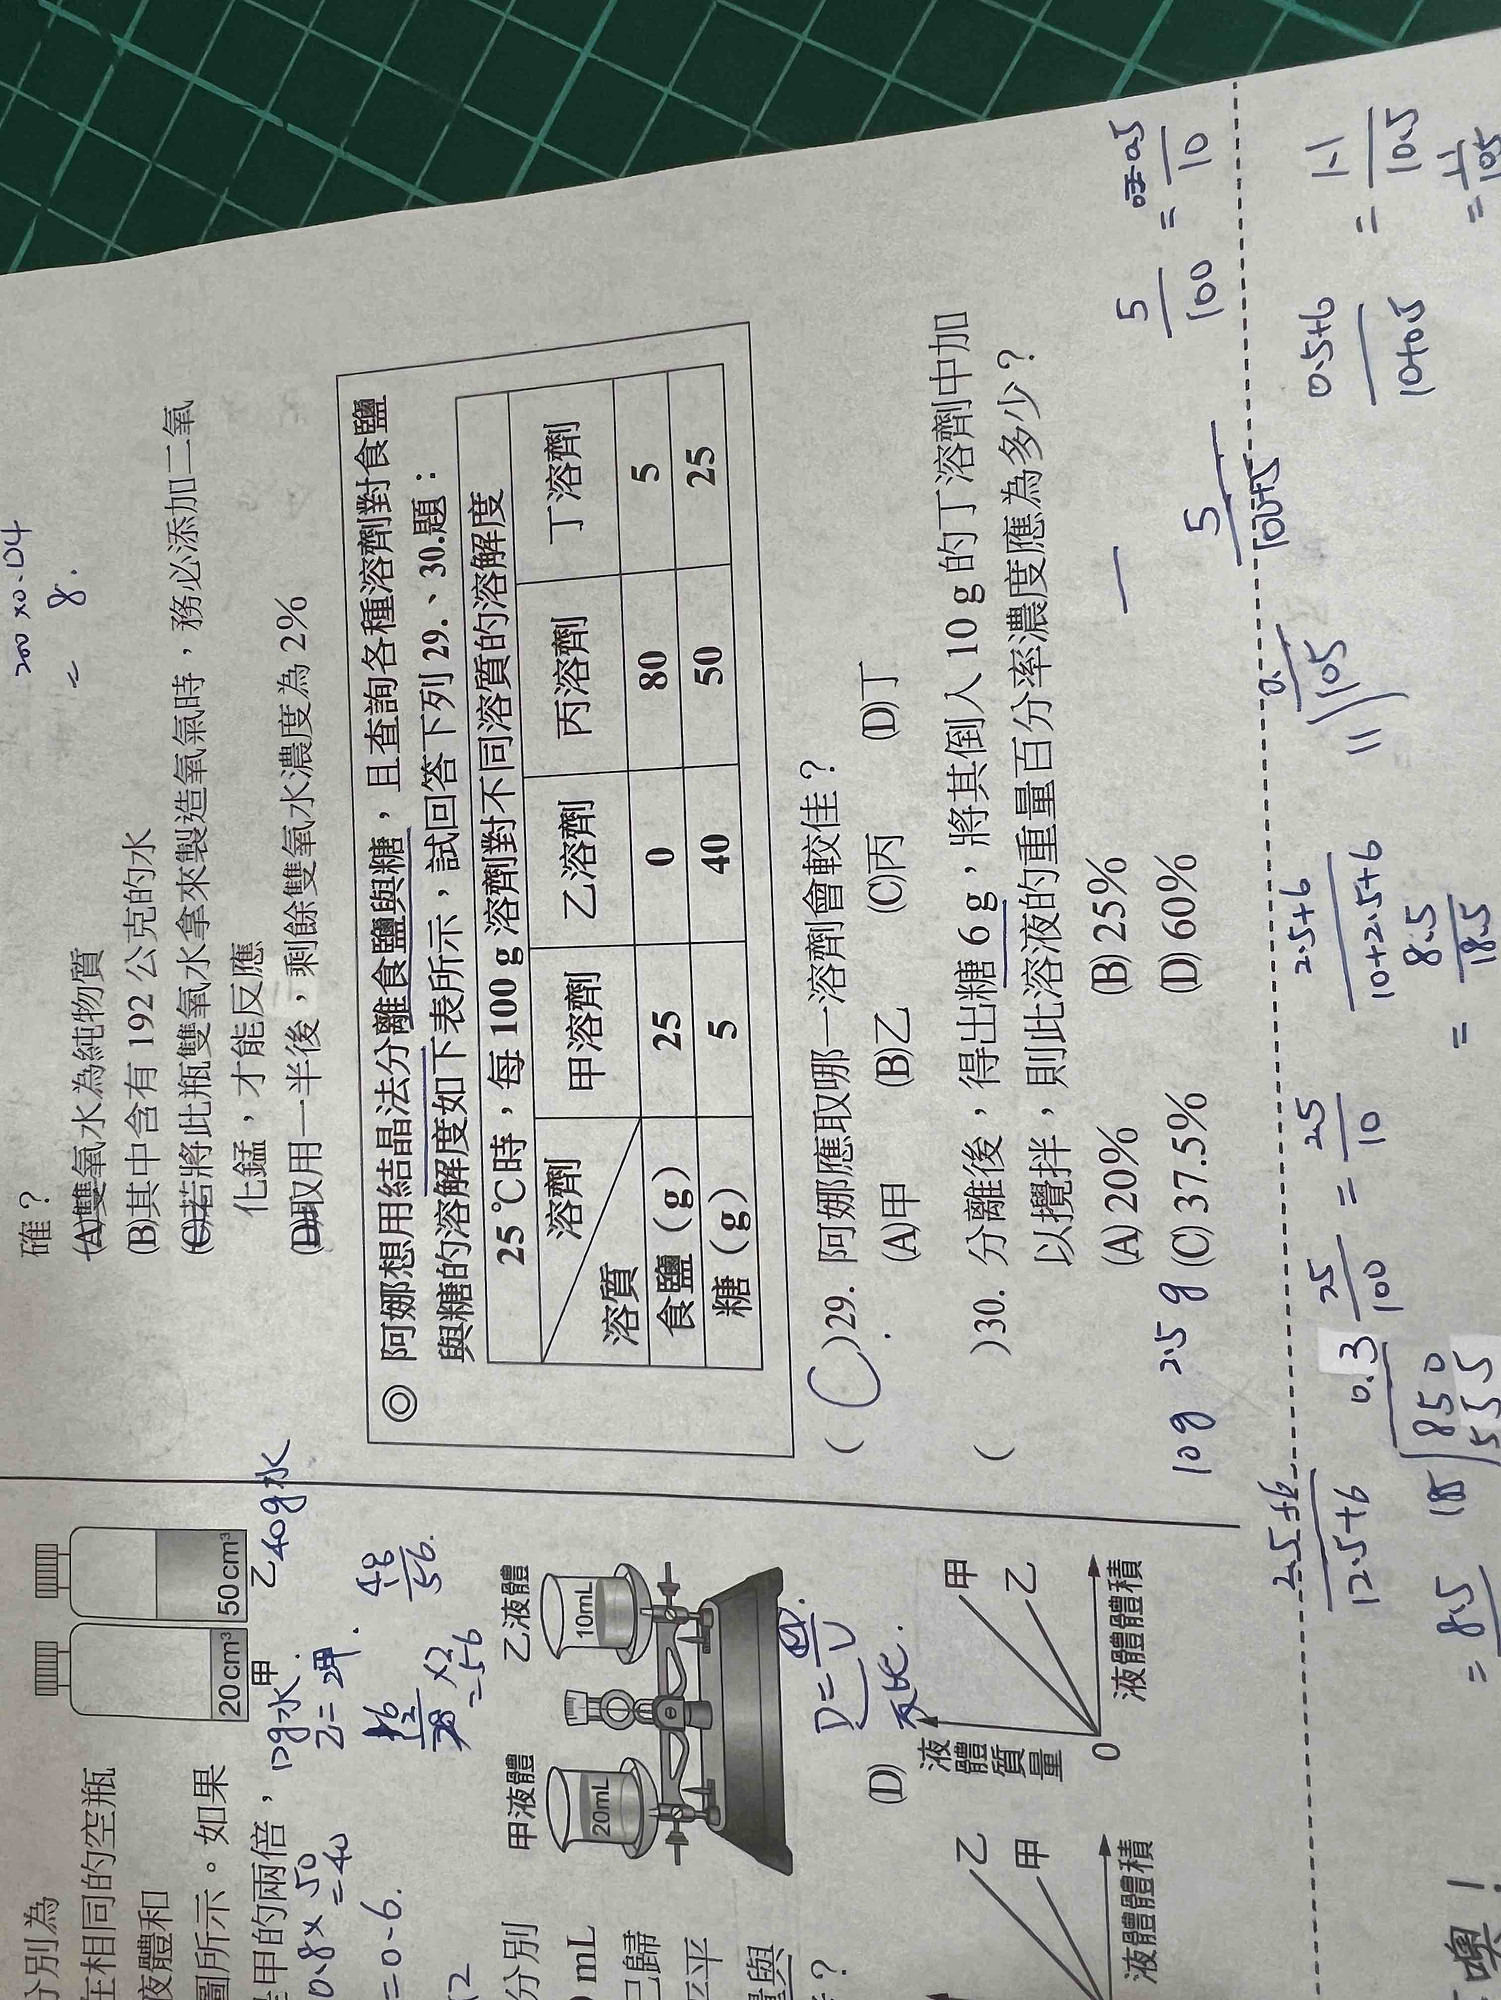 200 × 0.04
= 8.
確？
(A)雙氧水為純物質
(B)其中含有 192 公克的水
(C)若將此瓶雙氧水拿來製造氧氣時，務必添加二氧
化錳，才能反應
(D)取用一半後，剩餘雙氧水濃度為 2%
◎ 阿娜想用結晶法分離食鹽與糖，且查詢各種溶劑對食鹽
與糖的溶解度如下表所示，試回答下列 29.、30.題：
25 ℃時，每 100 g 溶劑對不同溶質的溶解度
溶劑 甲溶劑 乙溶劑 丙溶劑 丁溶劑
溶質
食鹽（g） 25 0 80 5
糖（g） 5 40 50 25
( C )29. 阿娜應取哪一溶劑會較佳？
(A)甲 (B)乙 (C)丙 (D)丁
( )30. 分離後，得出糖 6 g，將其倒入 10 g 的丁溶劑中加
以攪拌，則此溶液的重量百分率濃度應為多少？
(A) 20% (B) 25%
(C) 37.5% (D) 60%
10g 2.5g
5/100 = 0.5/10
5
25/100 = 2.5/10
2.5+6/10+2.5+6
= 8.5/18.5
0.5+6/10+0.5 = 1.1/10.5
= 11/105
11/105
2.5+6/12.5+6
= 8.5
0.3
850
555
分別為
在相同的空瓶
液體和
圖所示。如果
是甲的兩倍，
20cm³ 50cm³
甲 乙
40g水
12g水.
乙=2甲.
0.8×50
=40
=0.6.
×2
=56
48/56.
分別
mL
已歸
量與
？
甲液體 乙液體
20mL 10mL
D=M/V
反比.
(D)
液體質量
甲
乙
0
液體體積
乙
甲
液體體積
噢！